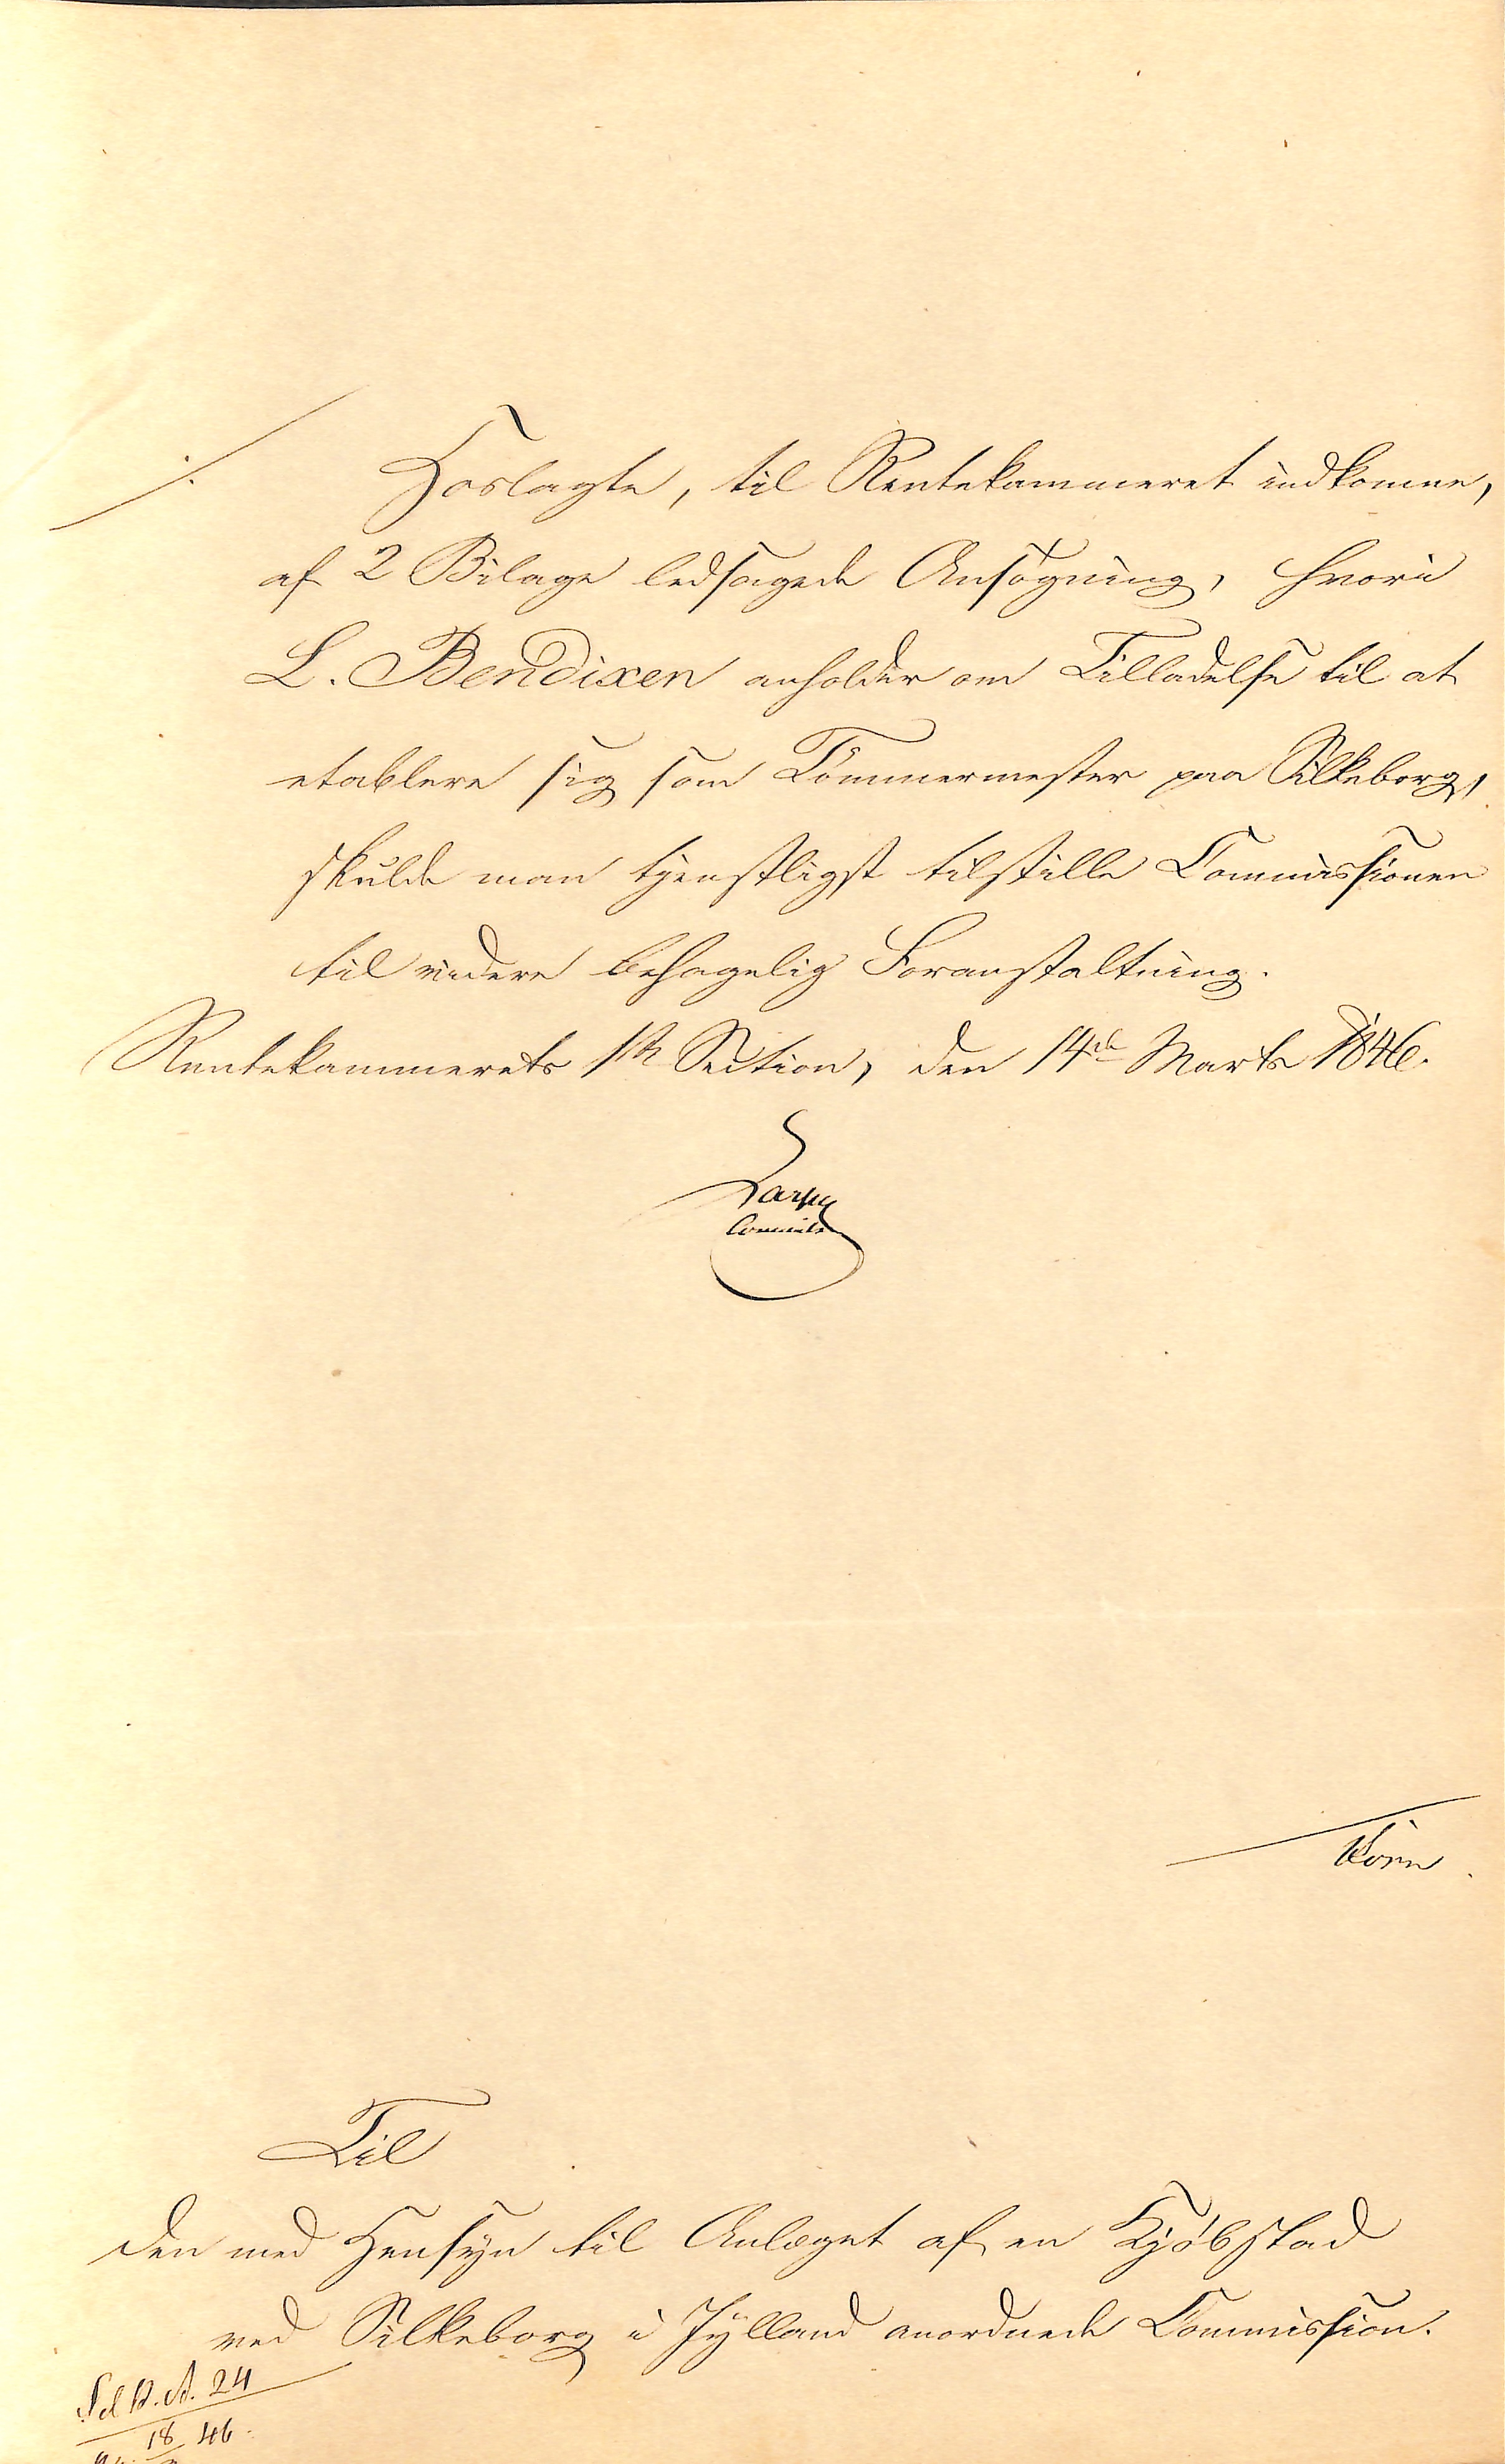 Hoslagte, til Rentekammeret indkomne,
af 2 Bilage ledsagede Ansøgning, hvori
L. Bendixen anholder om Tilladelse til at
etablere sig som Tömmermester paa Silkeborg,
skulde man tjenstligst tilstille Commissionen
til videre behagelig Foranstaltning.
Rentekammerets 1ste Section, den 14de Marts 1846.
Til
den med Hensyn til Anlæget af en Kjøbstad
ved Silkeborg i Jylland anordnede Commission.
24
18 46